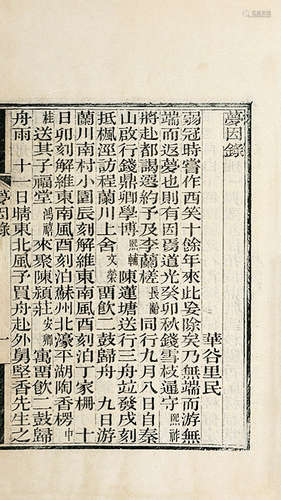 夢因錄
華谷里民
弱冠時嘗作西笑十餘年來此妄除矣乃無端而游無
端而返夢也則有因焉道光癸卯秋錢雪枝通守熙祚
將赴都謁選約予及李蘭槎長齡同行九月八日自秦
山啟行錢鼎卿學博熙輔陳蓮塘送行三舟竝發戌刻
抵楓涇訪程蘭川舍文榮賈飲二鼓歸舟 九日游
蘭川南村小園辰刻解維東南風酉刻泊丁家柵 十
日卯刻解維東南風酉刻泊蘇州北濠平湖陶香樗中
桂送其子福堂鴻禧來聚陳潁莊安卿寓賈飲二鼓歸
舟雨 十一日晴東北風子買舟赴外舅堅香先生之
夢因錄
一